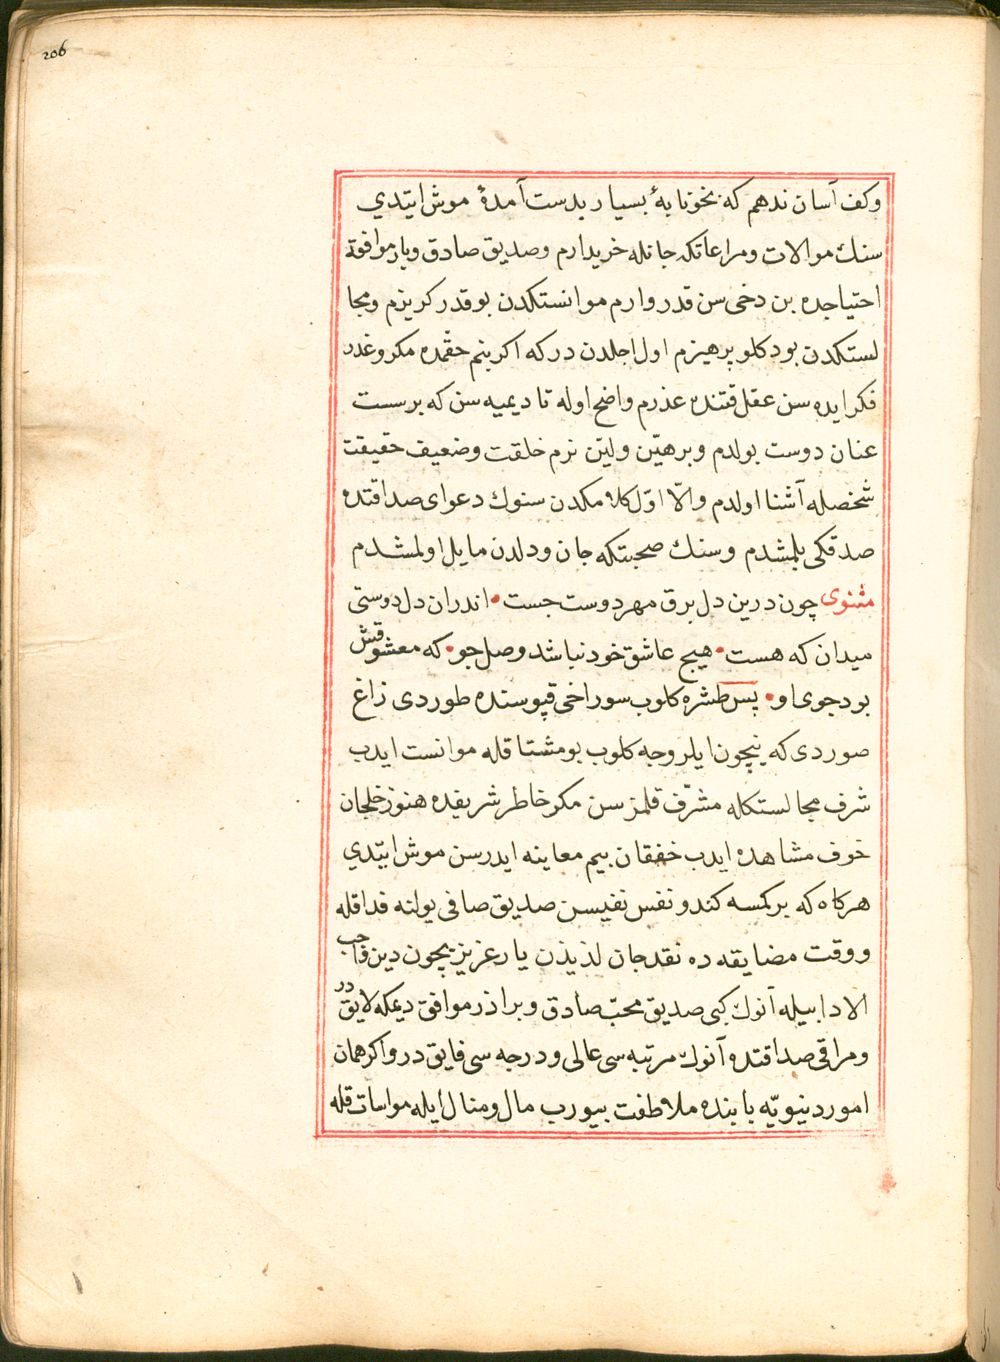 206
وكف آسان ندهم كه بخونابهٔ بسيار بدست آمدهٔ موش ايتدي
سنك موالات ومراعاتكه جانله خريدارم وصديق صادق ويار موافقة
احتياجده بن دخى سن قدر وارم موانستكدن بو قدر كريزم ومجا
لستكدن بو دكلو پرهيزم اول اجلدن دركه اكر بنم حقمده مكر وغدر
فكر ايده سن عقل قتنده عذرم واضح اوله تا ديميه سن كه بر سست
عنان دوست بولدم وبر هيّن وليّن نرم خلقت وضعيف حقيقت
شخصله آشنا اولدم والّا اوّل كلامكدن سنوك دعواى صداقتده
صدقكى بلمشدم وسنك صحبتكه جان ودلدن مايل اولمشدم
مثنوى چون درين دل برق مهر دوست جست • اندران دل دوستى
ميدان كه هست • هيچ عاشق خود نباشد وصل جو • كه معشوقش
بود جوى او • پس طشره كلوب سوراخى قپوسنده طوردى زاغ
صوردى كه نيچون ايلرو جه كلوب بو مشتاقله موانست ايدب
شرف مجالستكله مشرّف قلمزسن مكر خاطر شريفده هنوز خلجان
خوف مشاهده ايدب خفقان بيم معاينه ايدرسن موش ايتدي
هركاه كه بر كمسه كندو نفس نفيسن صديق صافى يولنه فدا قله
ووقت مضايقه ده نقد جان لذيذن يار عزيز يچون دين واجب
الادا بيله آنوك كبى صديق محبّ صادق وبرادر موافق ديمكه لايق در
ومراقى صداقتده آنوك مرتبه سى عالى ودرجه سى فايق در واكر همان
امور دينويّه بابنده ملاطفت بيورب مال ومنال ايله مواسات قله